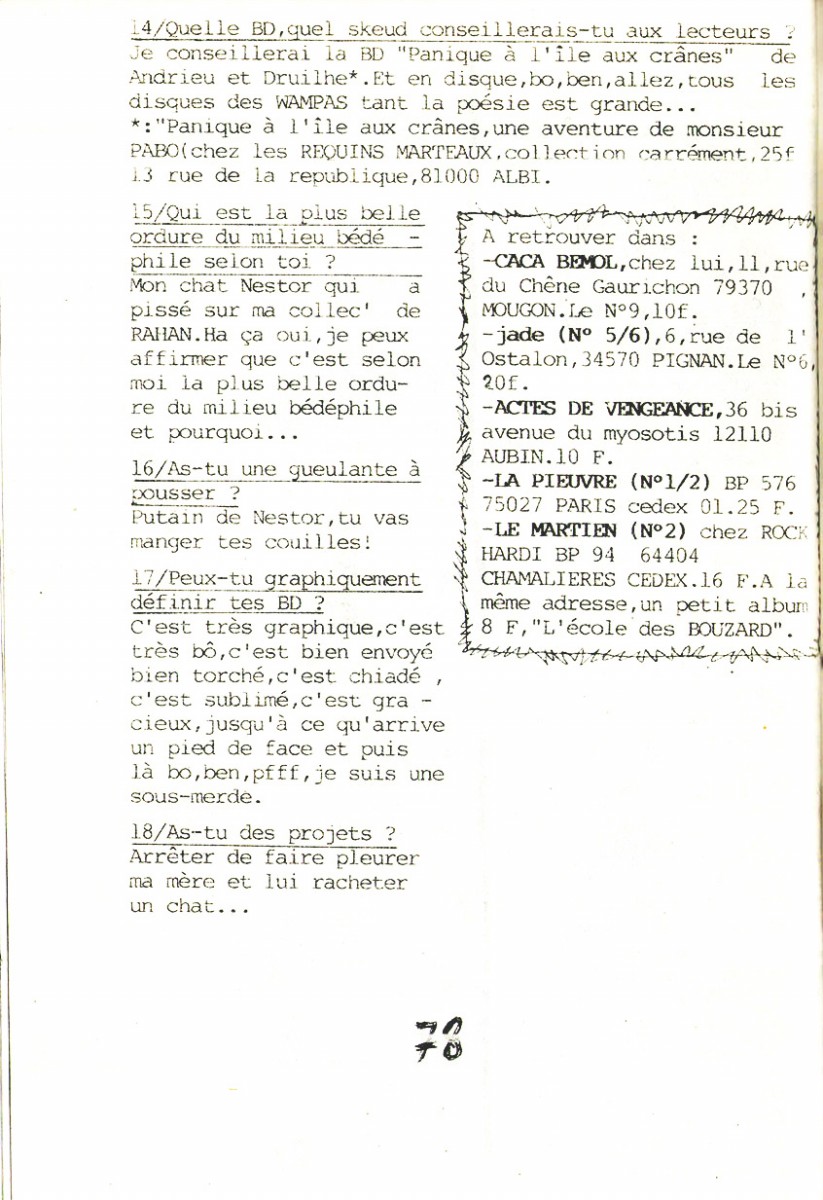 14/Quelle BD,quel skeud conseillerais-tu aux lecteurs ?
Je conseillerai la BD "Panique à l'île aux crânes" de
Andrieu et Druilhe*.Et en disque,bo,ben,allez,tous les
disques des WAMPAS tant la poésie est grande...
*:"Panique à l'île aux crânes,une aventure de monsieur
PABO(chez les REQUINS MARTEAUX,collection carrément,25f
13 rue de la republique,81000 ALBI.
15/Qui est la plus belle
ordure du milieu bédé -
phile selon toi ?
Mon chat Nestor qui a
pissé sur ma collec' de
RAHAN.Ha ça oui,je peux
affirmer que c'est selon
moi la plus belle ordu-
re du milieu bédéphile
et pourquoi...
16/As-tu une gueulante à
pousser ?
Putain de Nestor,tu vas
manger tes couilles!
17/Peux-tu graphiquement
définir tes BD ?
C'est très graphique,c'est
très bô,c'est bien envoyé
bien torché,c'est chiadé ,
c'est sublimé,c'est gra -
cieux,jusqu'à ce qu'arrive
un pied de face et puis
là bo,ben,pfff,je suis une
sous-merde.
18/As-tu des projets ?
Arrêter de faire pleurer
ma mère et lui racheter
un chat...
A retrouver dans :
-CACA BEMOL,chez lui,11,rue
du Chêne Gaurichon 79370 ,
MOUGON.Le N°9,10f.
-jade (N° 5/6),6,rue de l'
Ostalon,34570 PIGNAN.Le N°6,
20f.
-ACTES DE VENGEANCE,36 bis
avenue du myosotis 12110
AUBIN.10 F.
-LA PIEUVRE (N°1/2) BP 576
75027 PARIS cedex 01.25 F.
-LE MARTIEN (N°2) chez ROCK
HARDI BP 94 64404
CHAMALIERES CEDEX.16 F.A la
même adresse,un petit album
8 F,"L'école des BOUZARD".